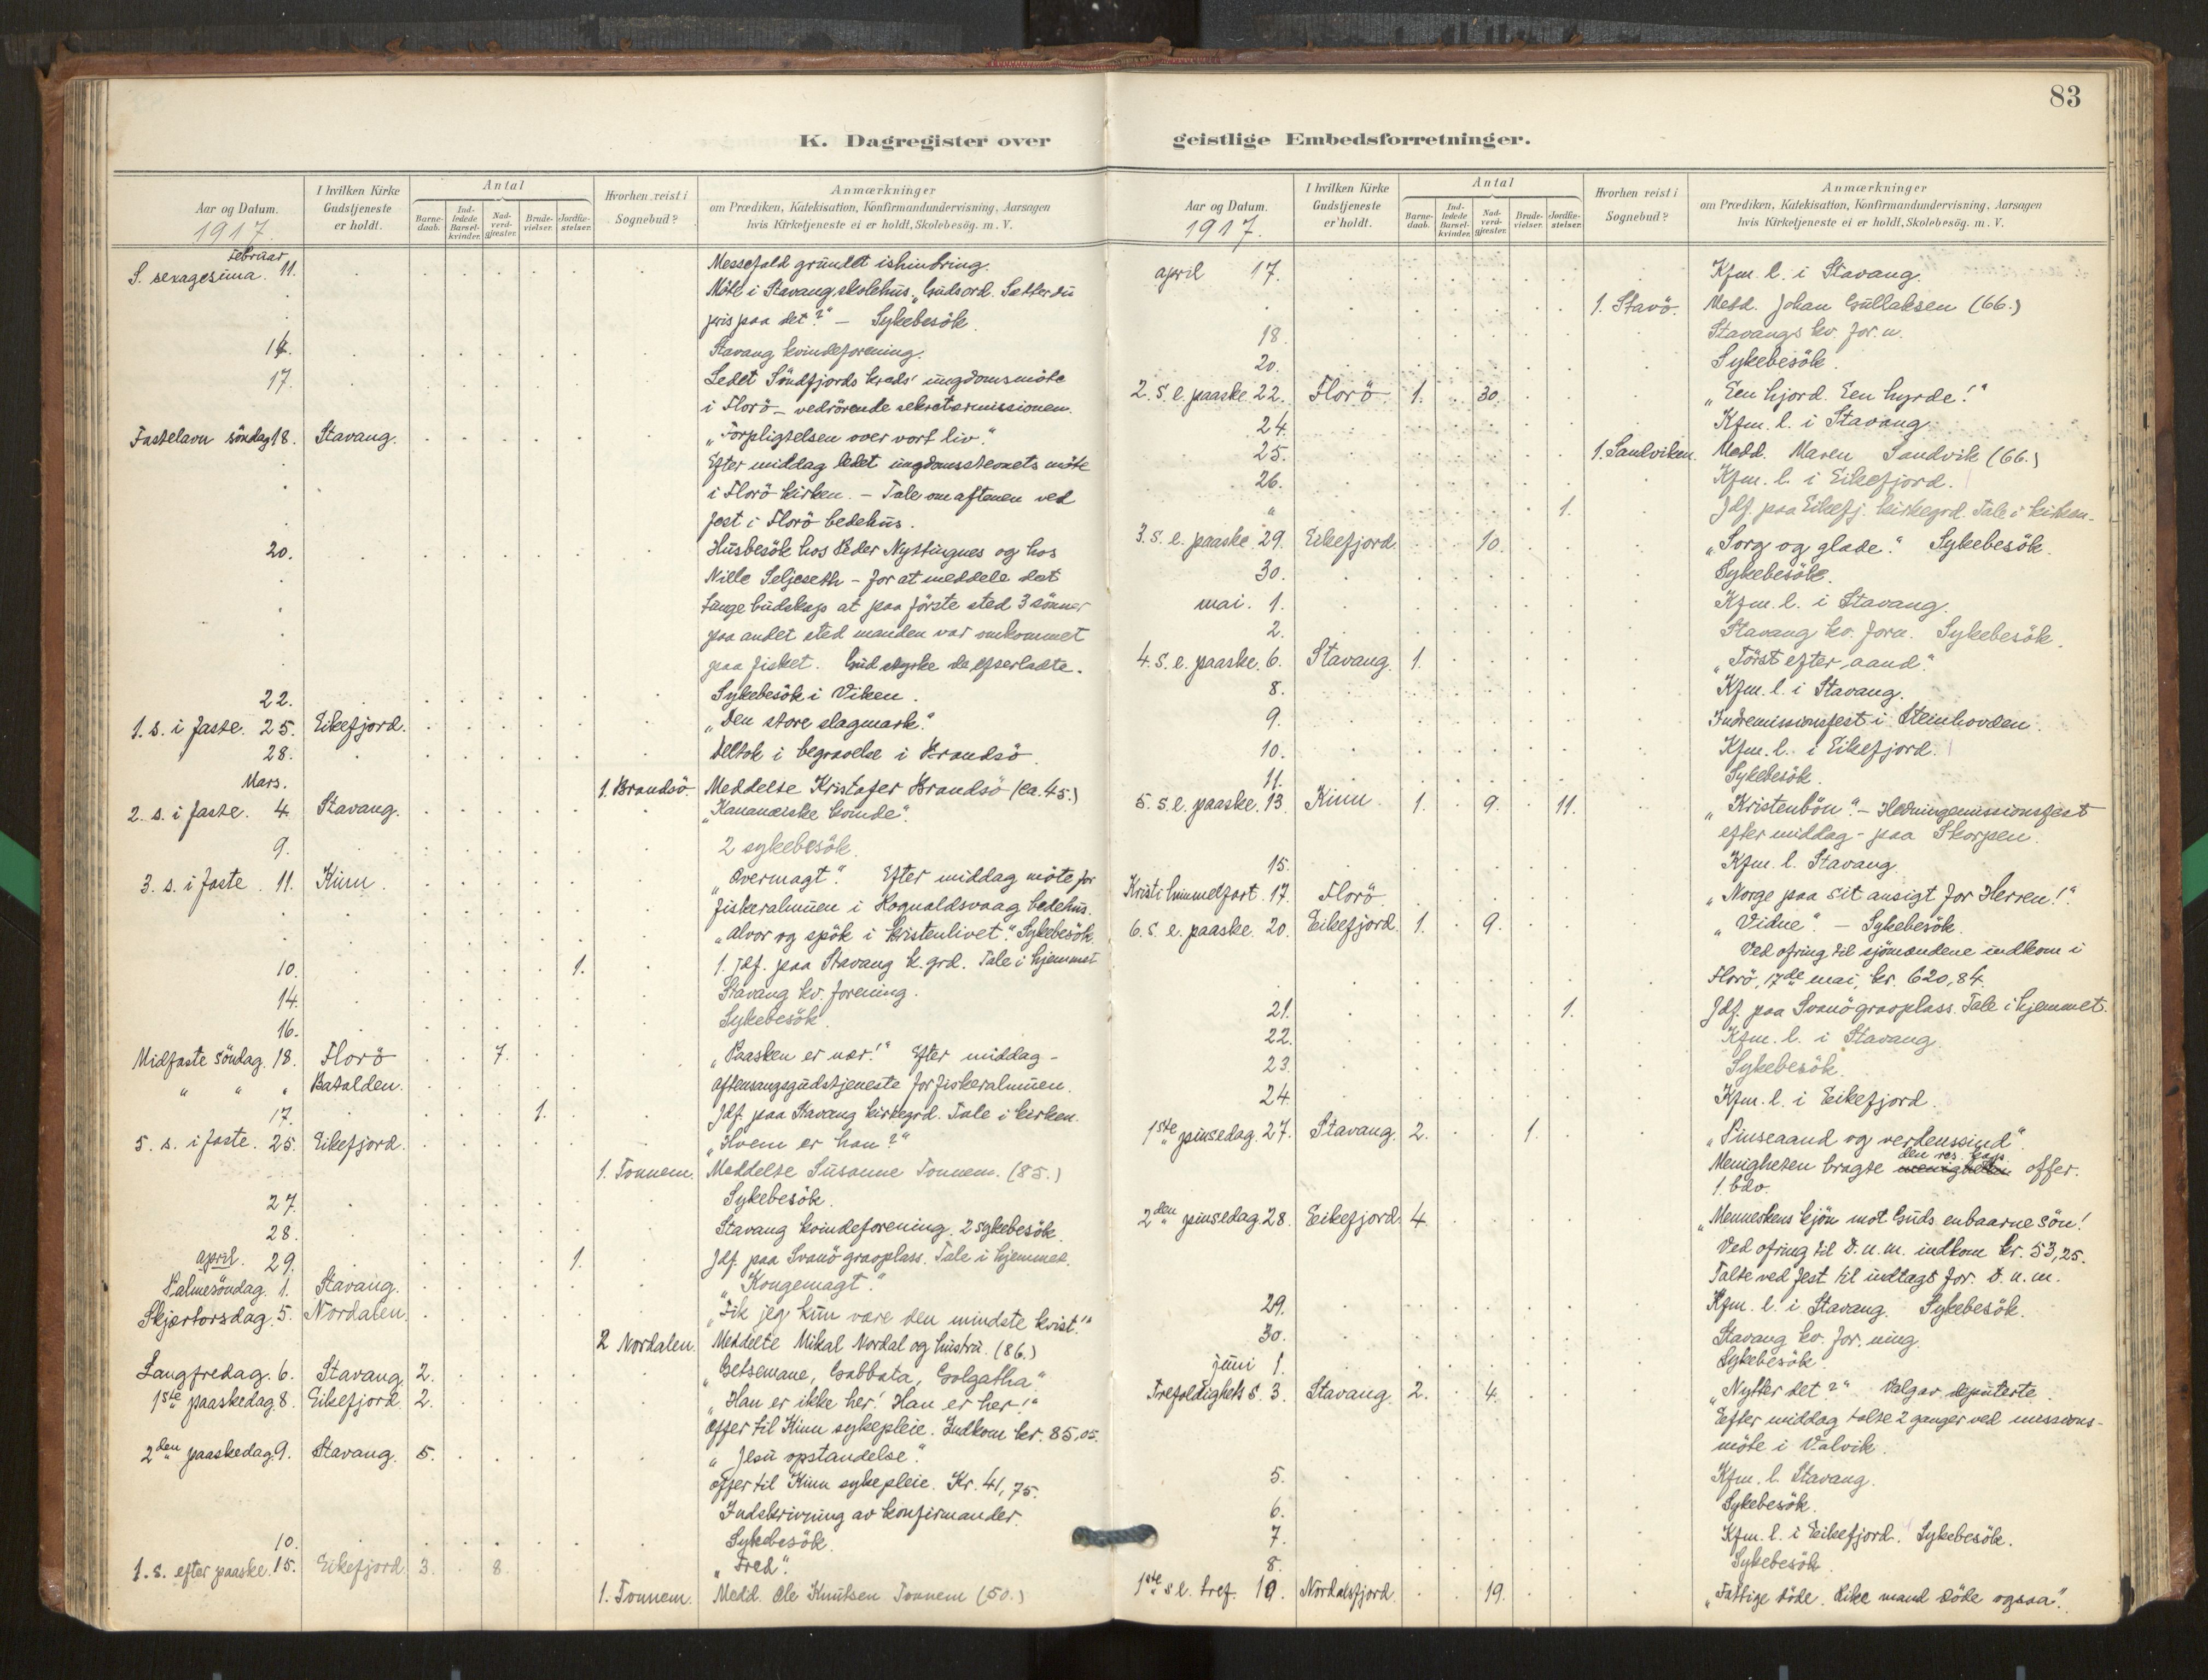 83
K. Dagregister over geistlige Embedsforretninger.
Aar og Datum. 1917. I hvilken Kirke Gudstjeneste er holdt. Antal Barnedaab. Indledede Barselkvinder. Nadverdgjæster. Brudevielser. Jordfæstelser. Hvorhen reist i Sognebud? Anmærkninger om Prædiken, Katekisation, Konfirmandundervisning, Aarsagen hvis Kirketjeneste ei er holdt, Skolebesög. m. V.
Februar
S. sexagesima. 11. Messefald grundet ishindring.
Möte i Stavang skolehus. „Guds ord. Sætter du
pris paa det?" – Sykebesök.
14. Stavang kvindeforening.
17. Ledet Söndfjords kreds' ungdomsmöte
i Florö – vedrörende sekretærmissionen.
Fastelavn söndag 18. Stavang. „Forpligtelsen over vort liv."
Efter middag ledet ungdomsstevnets möte
i Florö kirken. – Tale om aftenen ved
fest i Florö bedehus.
20. Husbesök hos Peder Nyttingnes og hos
Nille Seljeseth – for at meddele det
tunge budskap at paa förste sted 3 sönner
paa andet sted manden var omkommet
paa fisket. Gud styrke de efterladte.
22. Sykebesök i Viken.
1. s. i faste. 25. Eikefjord. „Den store slagmark."
28. Deltok i begravelse i Brandsö.
Mars.
1. Brandsö. Meddelte Kristofer Brandsö (ca. 45.)
2. s. i faste. 4. Stavang. „Kananæiske kvinde".
9. 2 sykebesök.
3. s. i faste. 11. Kinn. „Overmagt". Efter middag möte for
fiskeralmuen i Rognaldsvaag bedehus.
„Alvor og spök i kristenlivet." Sykebesök.
10. 1. 1. Jdf. paa Stavang k.grd. Tale i hjemmet
14. Stavang kv. forening.
16. Sykebesök.
Midfaste söndag. 18. Florö 7. „Paasken er nær!" Efter middag –
" " " Batalden. aftensangsgudstjeneste for fiskeralmuen.
17. 1. Jdf. paa Stavang kirkegrd. Tale i kirken.
5. s. i faste. 25. Eikefjord. „Hvem er han?"
1. Tonnem. Meddelte Susanne Tonnem. (85.)
27. Sykebesök.
28. Stavang kvindeforening. 2 sykebesök.
29. 1. Jdf. paa Svanö gravplass. Tale i hjemmet.
April.
Palmesöndag. 1. Stavang. „Kongemagt".
Skjærtorsdag. 5. Nordalen. „Fik jeg kun være den mindste kvist!"
2 Nordalen. Meddelte Mikal Nordal og hustru. (86.)
Langfredag. 6. Stavang. 2. „Getsemane, Gabbata, Golgatha."
1ste paaskedag 8. Eikefjord. 2. „Han er ikke her! Han er her!"
Offer til Kinn sykepleie. Indkom kr. 85,05.
2den paaskedag 9. Stavang. 5. „Jesu opstandelse".
Offer til Kinn sykepleie. Kr. 41,75.
Indskrivning av konfirmander.
10. Sykebesök.
1. s. efter paaske. 15. Eikefjord 3. 8. „Fred".
1. Tonnem. Medd. Ole Knutsen Tonnem (50.)
Aar og Datum. 1917. I hvilken Kirke Gudstjeneste er holdt. Antal Barnedaab. Indledede Barselkvinder. Nadverdgjæster. Brudevielser. Jordfæstelser. Hvorhen reist i Sognebud? Anmærkninger om Prædiken, Katekisation, Konfirmandundervisning, Aarsagen hvis Kirketjeneste ei er holdt, Skolebesög. m. V.
April 17. Kfm. l. i Stavang.
1. Stavö. Medd. Johan Gullaksen (66.)
18. Stavangs kv. for.n.
20. Sykebesök.
2. s. e. paaske. 22. Florö 1. 30. „Een hjord. Een hyrde!"
24. Kfm. l. i Stavang.
25. 1. Sandviken. Medd. Maren Sandvik (66.)
26. Kfm. l. i Eikefjord.
" 1. Jdf. paa Eikefj. kirkegrd. Tale i kirken.
3. s. e. paaske. 29. Eikefjord 10. „Sorg og glæde." Sykebesök.
30. Sykebesök.
mai. 1. Kfm. l. i Stavang.
2. Stavang kv. forn. Sykebesök.
4. s. e. paaske. 6. Stavang. 1. „Törst efter aand".
8. Kfm. l. i Stavang.
9. Indremissionsfest i Steinhovden.
10. Kfm. l. i Eikefjord.
11. Sykebesök.
5. s. e. paaske. 13. Kinn. 1. 9. 11. „Kristenbön". – Hedningemissionsfest
efter middag – paa Skorpen.
15. Kfm. l. Stavang.
Kristi himmelfart. 17. Florö. „Norge paa sit ansigt for Herren!"
6. s. e. paaske. 20. Eikefjord 1. 9. „Vidne". – Sykebesök.
Ved ofring til sjömændene indkom i
Florö, 17de mai, kr. 620,84.
21. 1. Jdf. paa Svanö gravplass. Tale i hjemmet.
22. Kfm. l. i Stavang.
23. Sykebesök.
24. Kfm. l. i Eikefjord.
1ste pinsedag. 27. Stavang. 2. 1. „Pinseaand og verdenssind".
Menigheten bragte den res. kap. offer.
1. bdv.
2den pinsedag 28. Eikefjord. 4. „Menneskens kjön mot Guds enbaarne sön!
Ved ofring til D. n. m. indkom kr. 53,25.
Talte ved fest til indtægt for D. n. m.
29. Kfm. l. i Stavang. Sykebesök.
30. Stavang kv. for.ning.
juni 1. Sykebesök.
Trefoldighets s. 3. Stavang. 2. 4. „Nytter det?" Valgav deputerte.
Efter middag talte 2 ganger ved missions-
möte i Valvik.
5. Kfm. l. Stavang.
6. Sykebesök.
7. Kfm. l. i Eikefjord. Sykebesök.
8. Sykebesök.
1ste s. e. tref. 10. Nordalsfjord. 19. „Fattige döde. Rike mand döde ogsaa".